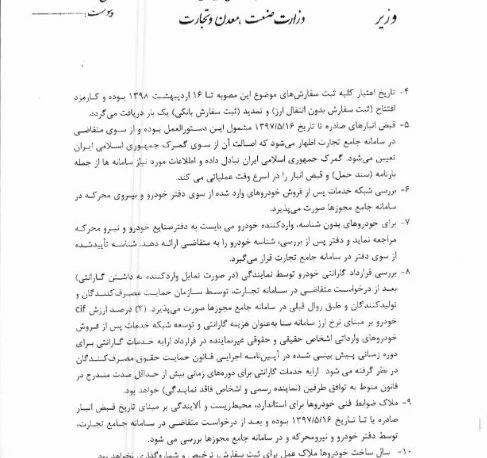 وزیر
وزارت صنعت، معدن و تجارت
پیوست:
۴- تاریخ اعتبار کلیه ثبت سفارش‌های موضوع این مصوبه تا ۱۶ اردیبهشت ۱۳۹۸ بوده و کارمزد
افتتاح (ثبت سفارش بدون انتقال ارز) و تمدید (ثبت سفارش بانکی) یک بار دریافت می‌گردد.
۵- قبض انبارهای صادره تا تاریخ ۱۳۹۷/۵/۱۶ مشمول این دستورالعمل بوده و از سوی متقاضی در
سامانه جامع تجارت اظهار می‌شود که اصالت آن از سوی گمرک جمهوری اسلامی ایران
تعیین می‌شود. گمرک جمهوری اسلامی ایران تبادل داده و اطلاعات مورد نیاز سامانه ها از جمله
بارنامه (سند حمل) و قبض انبار را در اسرع وقت عملیاتی می کند.
۶- بررسی شبکه خدمات پس از فروش خودروهای وارد شده از سوی دفتر خودرو و نیروی محرکه در
سامانه جامع مجوزها صورت می‌پذیرد.
۷- برای خودروهای بدون شناسه، واردکننده خودرو می بایست به دفترصنایع خودرو و نیرو محرکه
مراجعه نماید و دفتر پس از بررسی، شناسه خودرو را به متقاضی ارائه دهد. شناسه تأییدشده
از سوی دفتر در سامانه جامع تجارت قرار می‌گیرد.
۸- بررسی قرارداد گارانتی خودرو توسط نمایندگی (در صورت تمایل واردکننده به داشتن گارانتی)
بعد از درخواست متقاضی در سامانه تجارت، توسط سازمان حمایت مصرف‌کنندگان و
تولیدکنندگان و طبق روال قبلی در سامانه جامع مجوزها صورت می‌پذیرد. (۲) درصد ارزش cif
خودرو بر مبنای نرخ ارز سامانه سنا به‌عنوان هزینه گارانتی و توسعه شبکه خدمات پس از فروش
خودروهای وارداتی اشخاص حقیقی و حقوقی غیرنماینده در قرارداد ارایه خدمات گارانتی برای
دوره زمانی پیش بینی شده در آیین‌نامه اجرایی قانون حمایت حقوق مصرف‌کنندگان
در نظر گرفته می شود. ارایه خدمات گارانتی برای دوره‌های زمانی بیش از حداقل مدت مندرج در
قانون منوط به توافق طرفین (نماینده رسمی و اشخاص فاقد نمایندگی) خواهد بود.
۹- ملاک ضوابط فنی خودروها برای استاندارد، محیط‌زیست و آلایندگی بر مبنای تاریخ قبض انبار
صادره یا تا تاریخ ۱۳۹۷/۵/۱۶ بوده و بعد از درخواست متقاضی در سامانه جامع تجارت،
توسط دفتر خودرو و نیرومحرکه و در سامانه جامع مجوزها بررسی می شود.
۱۰- سال ساخت خودروها ملاک عمل برای ثبت سفارش، ترخیص و شماره‌گذاری نخواهد بود.